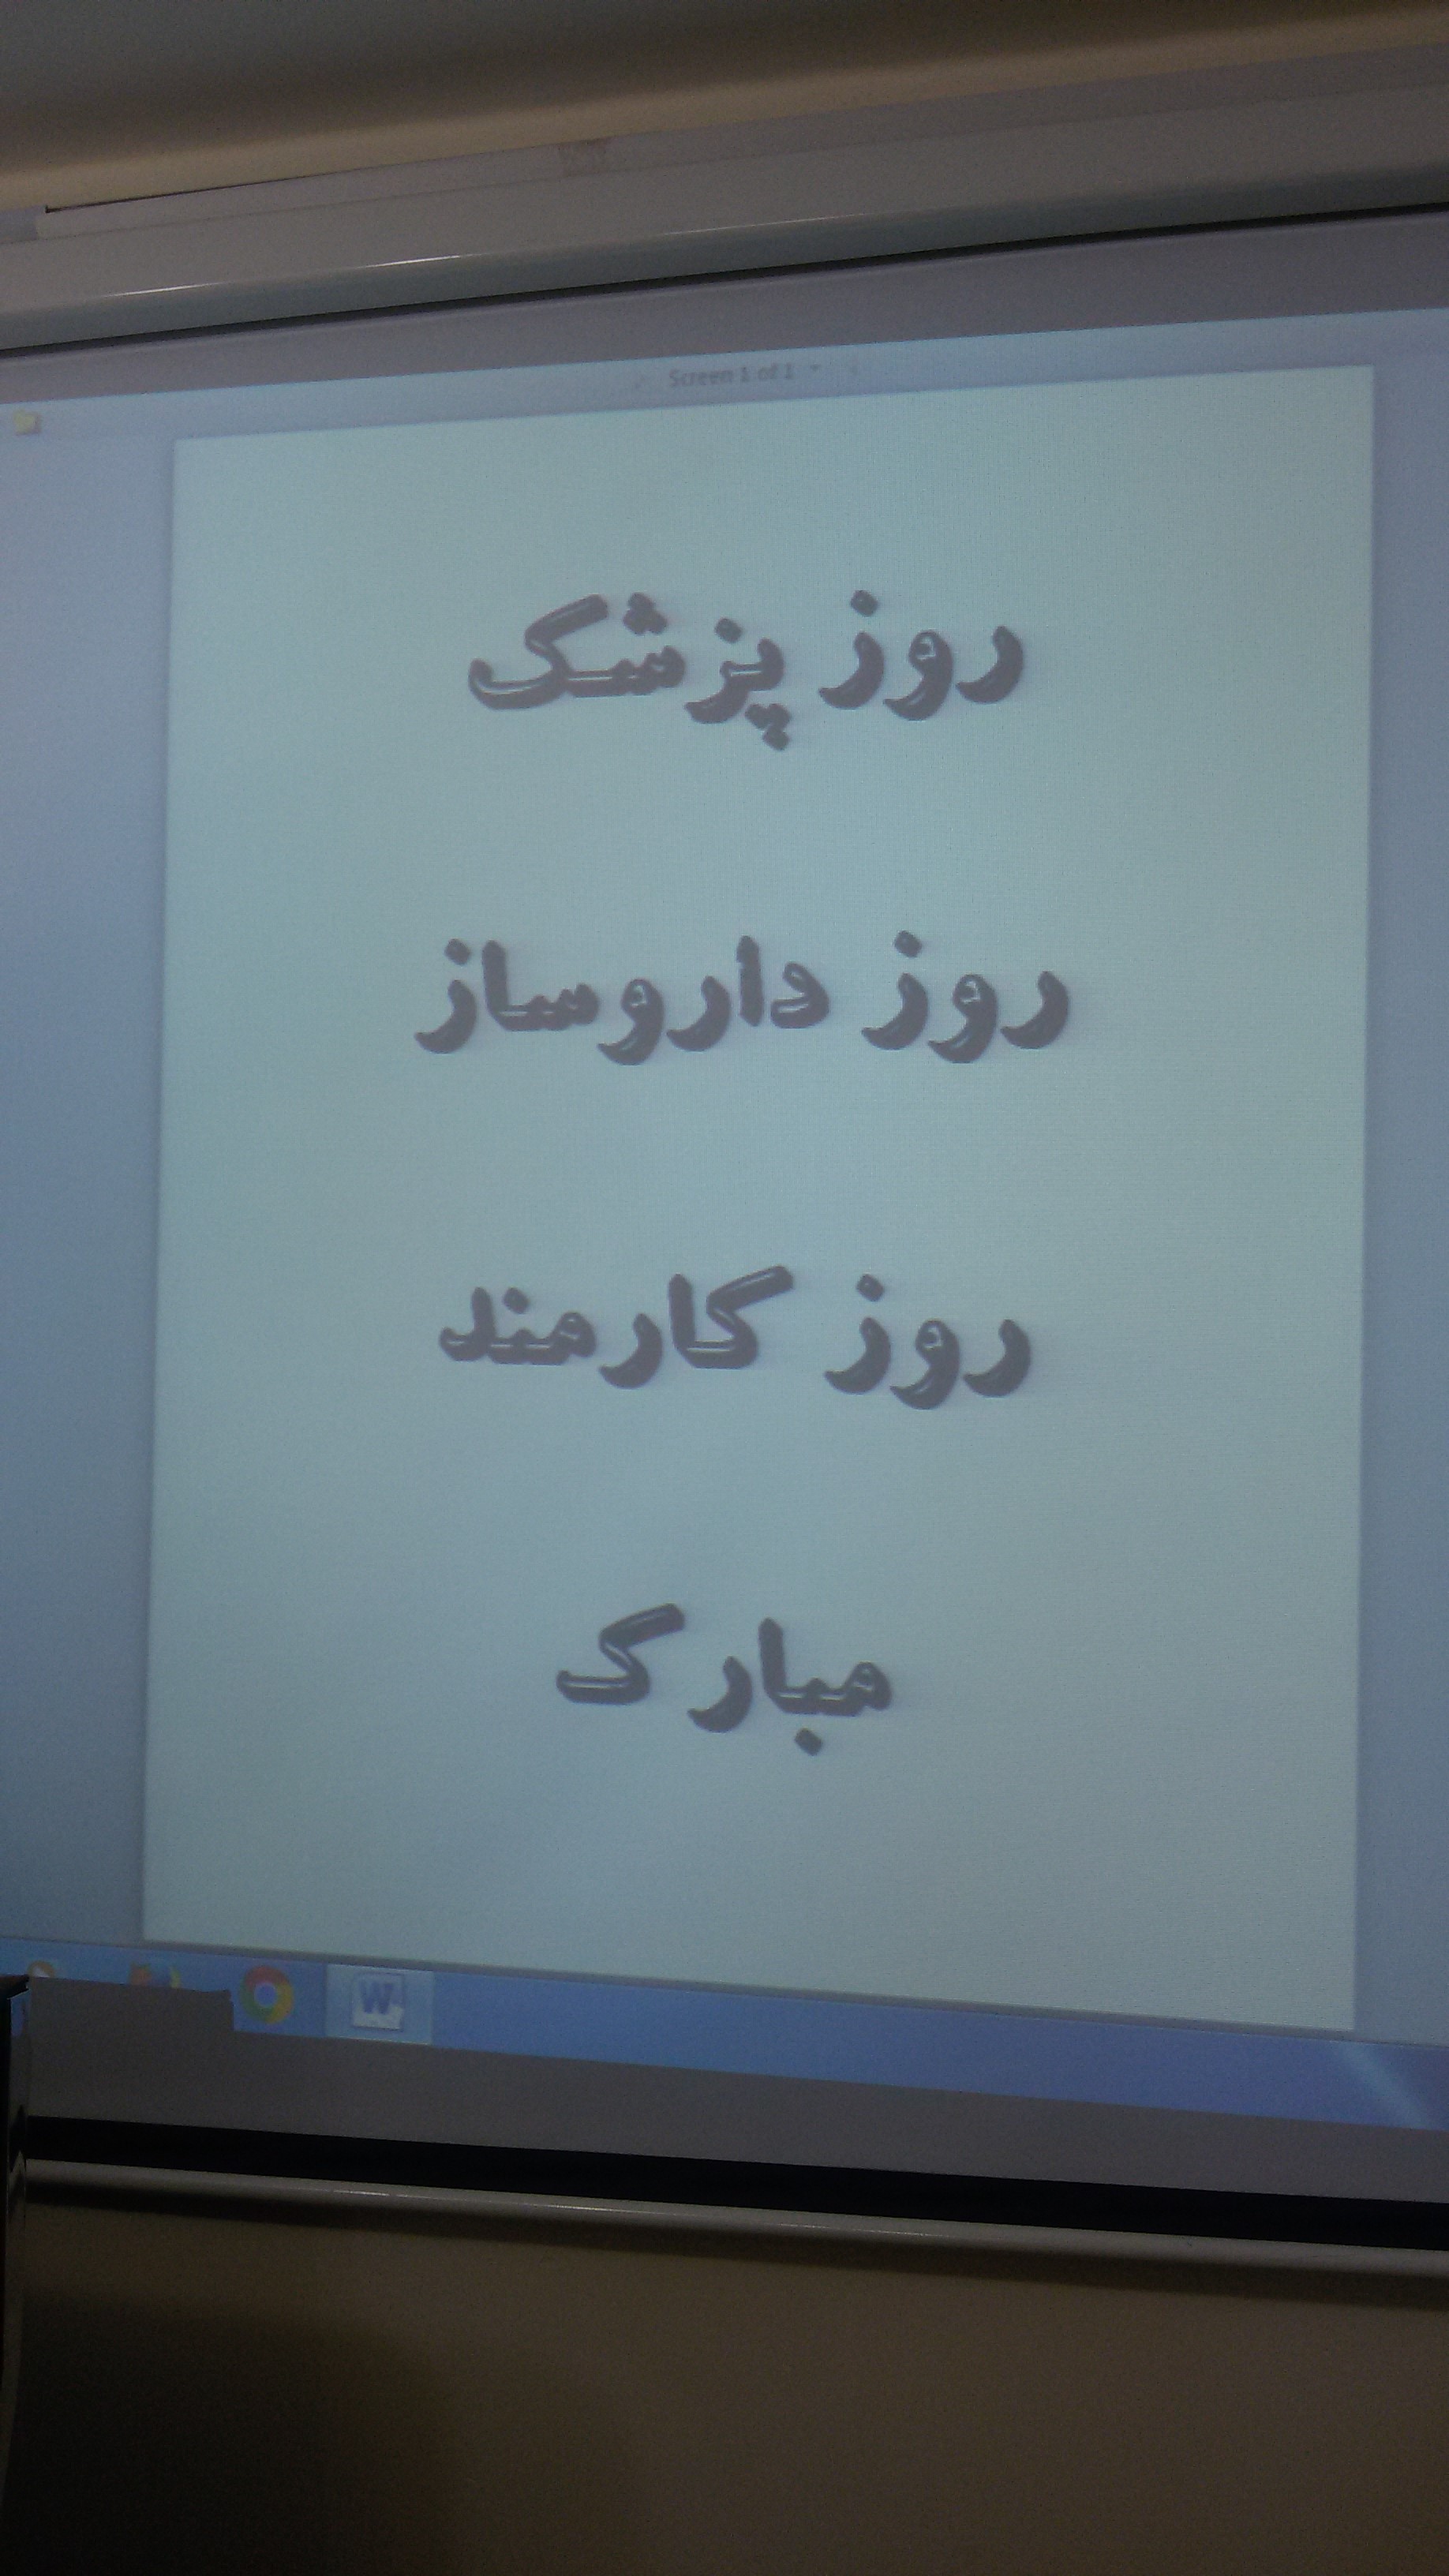 Screen 1 of 1
روز پزشک
روز داروساز
روز کارمند
مبارک
W